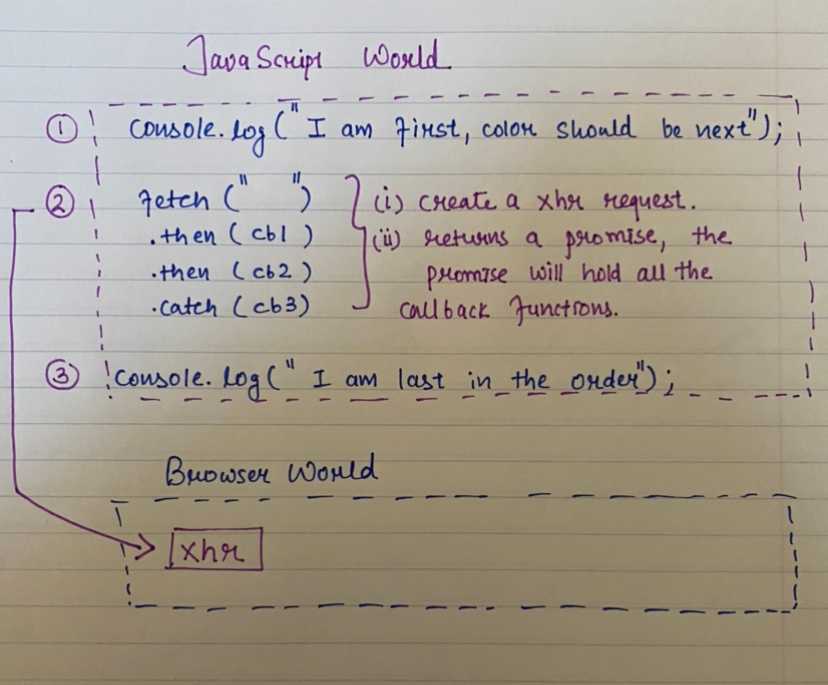 JavaScript World
① console.log("I am first, color should be next");
② fetch (" ") (i) create a xhr request.
.then (cb1) (ii) returns a promise, the
.then (cb2) promise will hold all the
.catch (cb3) callback functions.
③ console.log("I am last in the order");
Browser World
xhr